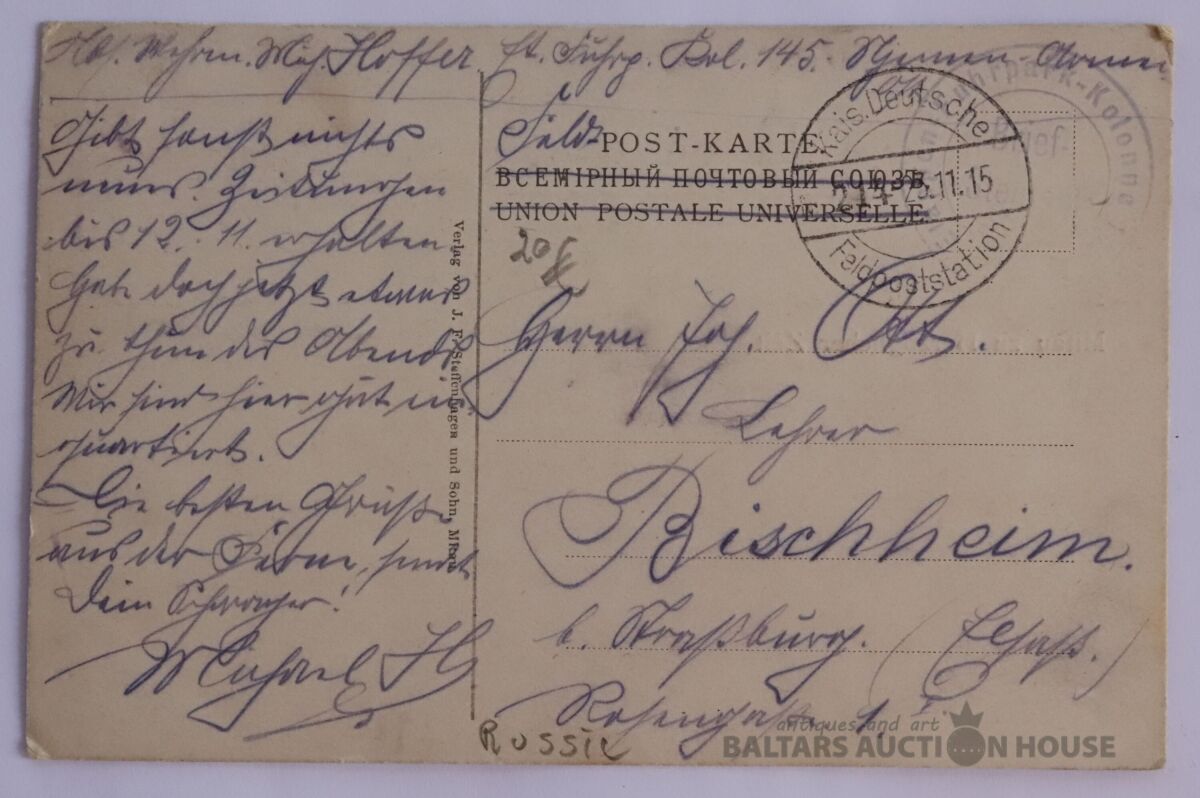 Abs. Wehrm. Mich. Hoffer. Et. Fuhrp. Kol. 145. Njemen-Armee
Gibt sonst nichts
neues. Zeitungen
bis 12. 11. erhalten.
Habe doch jetzt etwas
zu thun des Abends
Wir sind hier gut ein-
quartiert.
Die besten Grüße
aus der Ferne, sendet
Dein Schwager!
Michael H
Verlag von J. F. Steffenhagen und Sohn, Mitau
Feld-
POST-KARTE
ВСЕМІРНЫЙ ПОЧТОВЫЙ СОЮЗЪ
UNION POSTALE UNIVERSELLE
Kais. Deutsche
214 25.11.15
Feldpoststation
Fuhrpark-Kolonne
Brief-
20
Herrn Joh. Ott.
Lehrer
Bischheim.
b. Straßburg. (Elsaß.)
Rosengasse 1.
Russie
antiques and art
BALTARS AUCTION HOUSE